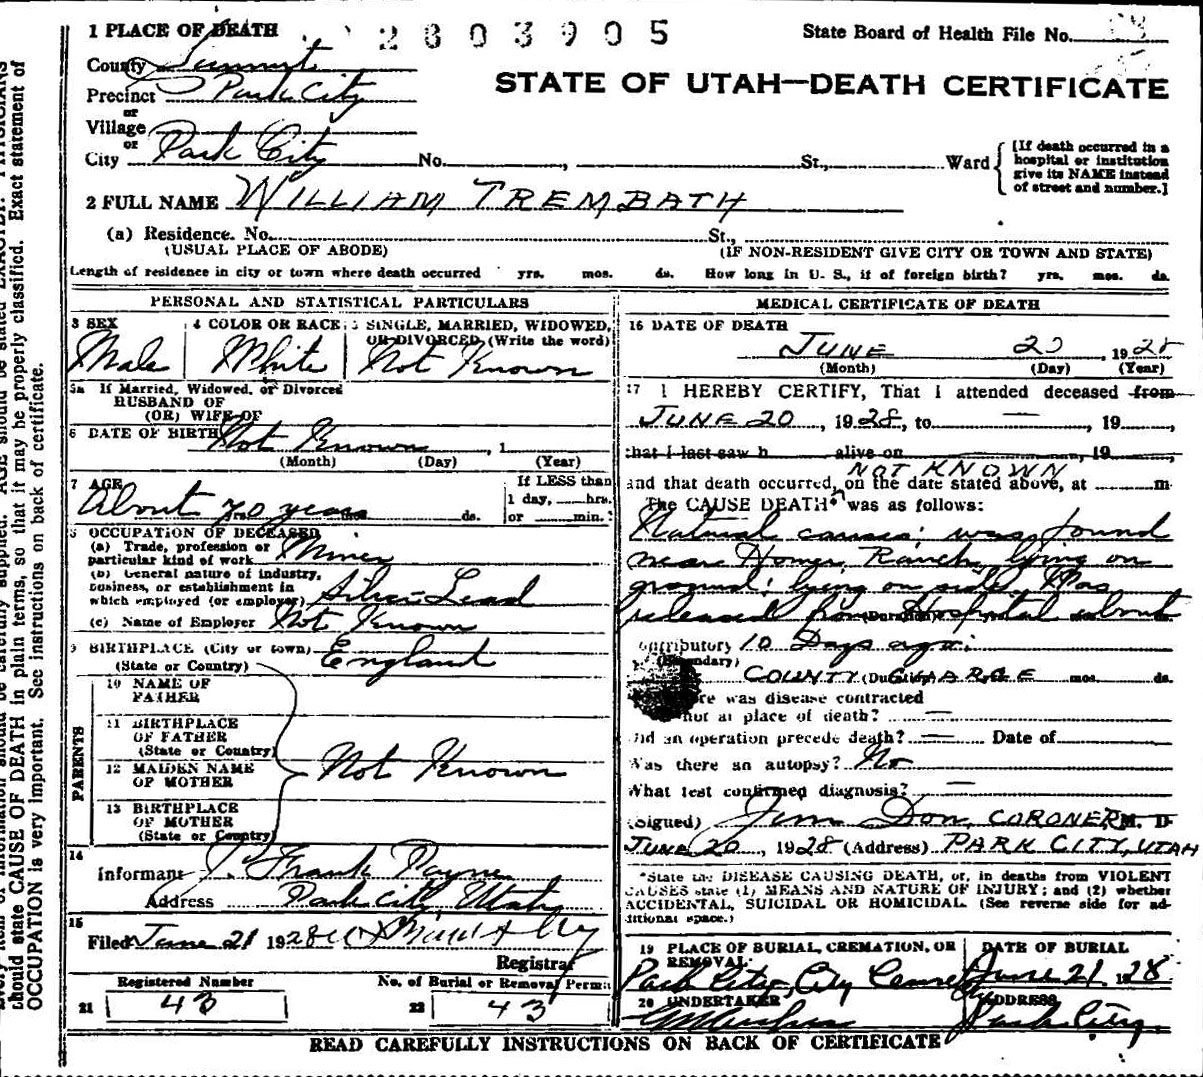 1 PLACE OF DEATH 2803905 State Board of Health File No.
County Summit
STATE OF UTAH—DEATH CERTIFICATE
Precinct Park City
or
Village
or
City Park City No. , St., Ward
[If death occurred in a
hospital or institution
give its NAME instead
of street and number.]
2 FULL NAME WILLIAM TREMBATH
(a) Residence. No. St.,
(USUAL PLACE OF ABODE) (IF NON-RESIDENT GIVE CITY OR TOWN AND STATE)
Length of residence in city or town where death occurred yrs. mos. ds. How long in U. S., if of foreign birth? yrs. mos. ds.
PERSONAL AND STATISTICAL PARTICULARS
3 SEX 4 COLOR OR RACE 5 SINGLE, MARRIED, WIDOWED,
OR DIVORCED (Write the word)
Male White Not Known
5a If Married, Widowed, or Divorced
HUSBAND OF
(OR) WIFE OF
6 DATE OF BIRTH Not Known , 1
(Month) (Day) (Year)
7 AGE If LESS than
About 70 years yrs. mos. ds. 1 day, hrs.
or min.
8 OCCUPATION OF DECEASED
(a) Trade, profession or
particular kind of work Miner
(b) General nature of industry,
business, or establishment in
which employed (or employer) Silver-Lead
(c) Name of Employer Not Known
9 BIRTHPLACE (City or town) England
(State or Country)
PARENTS
10 NAME OF
FATHER
11 BIRTHPLACE
OF FATHER
(State or Country)
12 MAIDEN NAME
OF MOTHER Not Known
13 BIRTHPLACE
OF MOTHER
(State or Country)
14
Informant J. Frank Payne
Address Park City, Utah
15
Filed June 21 1928
Registrar
Registered Number No. of Burial or Removal Permit
21 43 22 43
MEDICAL CERTIFICATE OF DEATH
16 DATE OF DEATH
JUNE 20 , 1928
(Month) (Day) (Year)
17 I HEREBY CERTIFY, That I attended deceased from
JUNE 20 , 1928, to — , 19 ,
that I last saw h alive on , 19 ,
NOT KNOWN
and that death occurred, on the date stated above, at m
The CAUSE DEATH* was as follows:
Natural causes; was found
near Homer Ranch, lying on
ground; lying on side. Was
released from Hospital about
(Duration)
Contributory 10 Days ago.
(Secondary)
COUNTY CHARGE (Duration) mos. ds.
Where was disease contracted
if not at place of death? —
Did an operation precede death? — Date of
Was there an autopsy? No
What test confirmed diagnosis? —
(Signed) Jim Don, CORONER M. D.
JUNE 20 , 1928 (Address) PARK CITY, UTAH
*State the DISEASE CAUSING DEATH, or, in deaths from VIOLENT
CAUSES state (1) MEANS AND NATURE OF INJURY; and (2) whether
ACCIDENTAL, SUICIDAL OR HOMICIDAL. (See reverse side for ad-
ditional space.)
19 PLACE OF BURIAL, CREMATION, OR
REMOVAL DATE OF BURIAL
Park City, City Cemetery June 21 1928
20 UNDERTAKER ADDRESS
Park City.
READ CAREFULLY INSTRUCTIONS ON BACK OF CERTIFICATE
should state CAUSE OF DEATH in plain terms, so that it may be properly classified. Exact statement of
OCCUPATION is very important. See instructions on back of certificate.